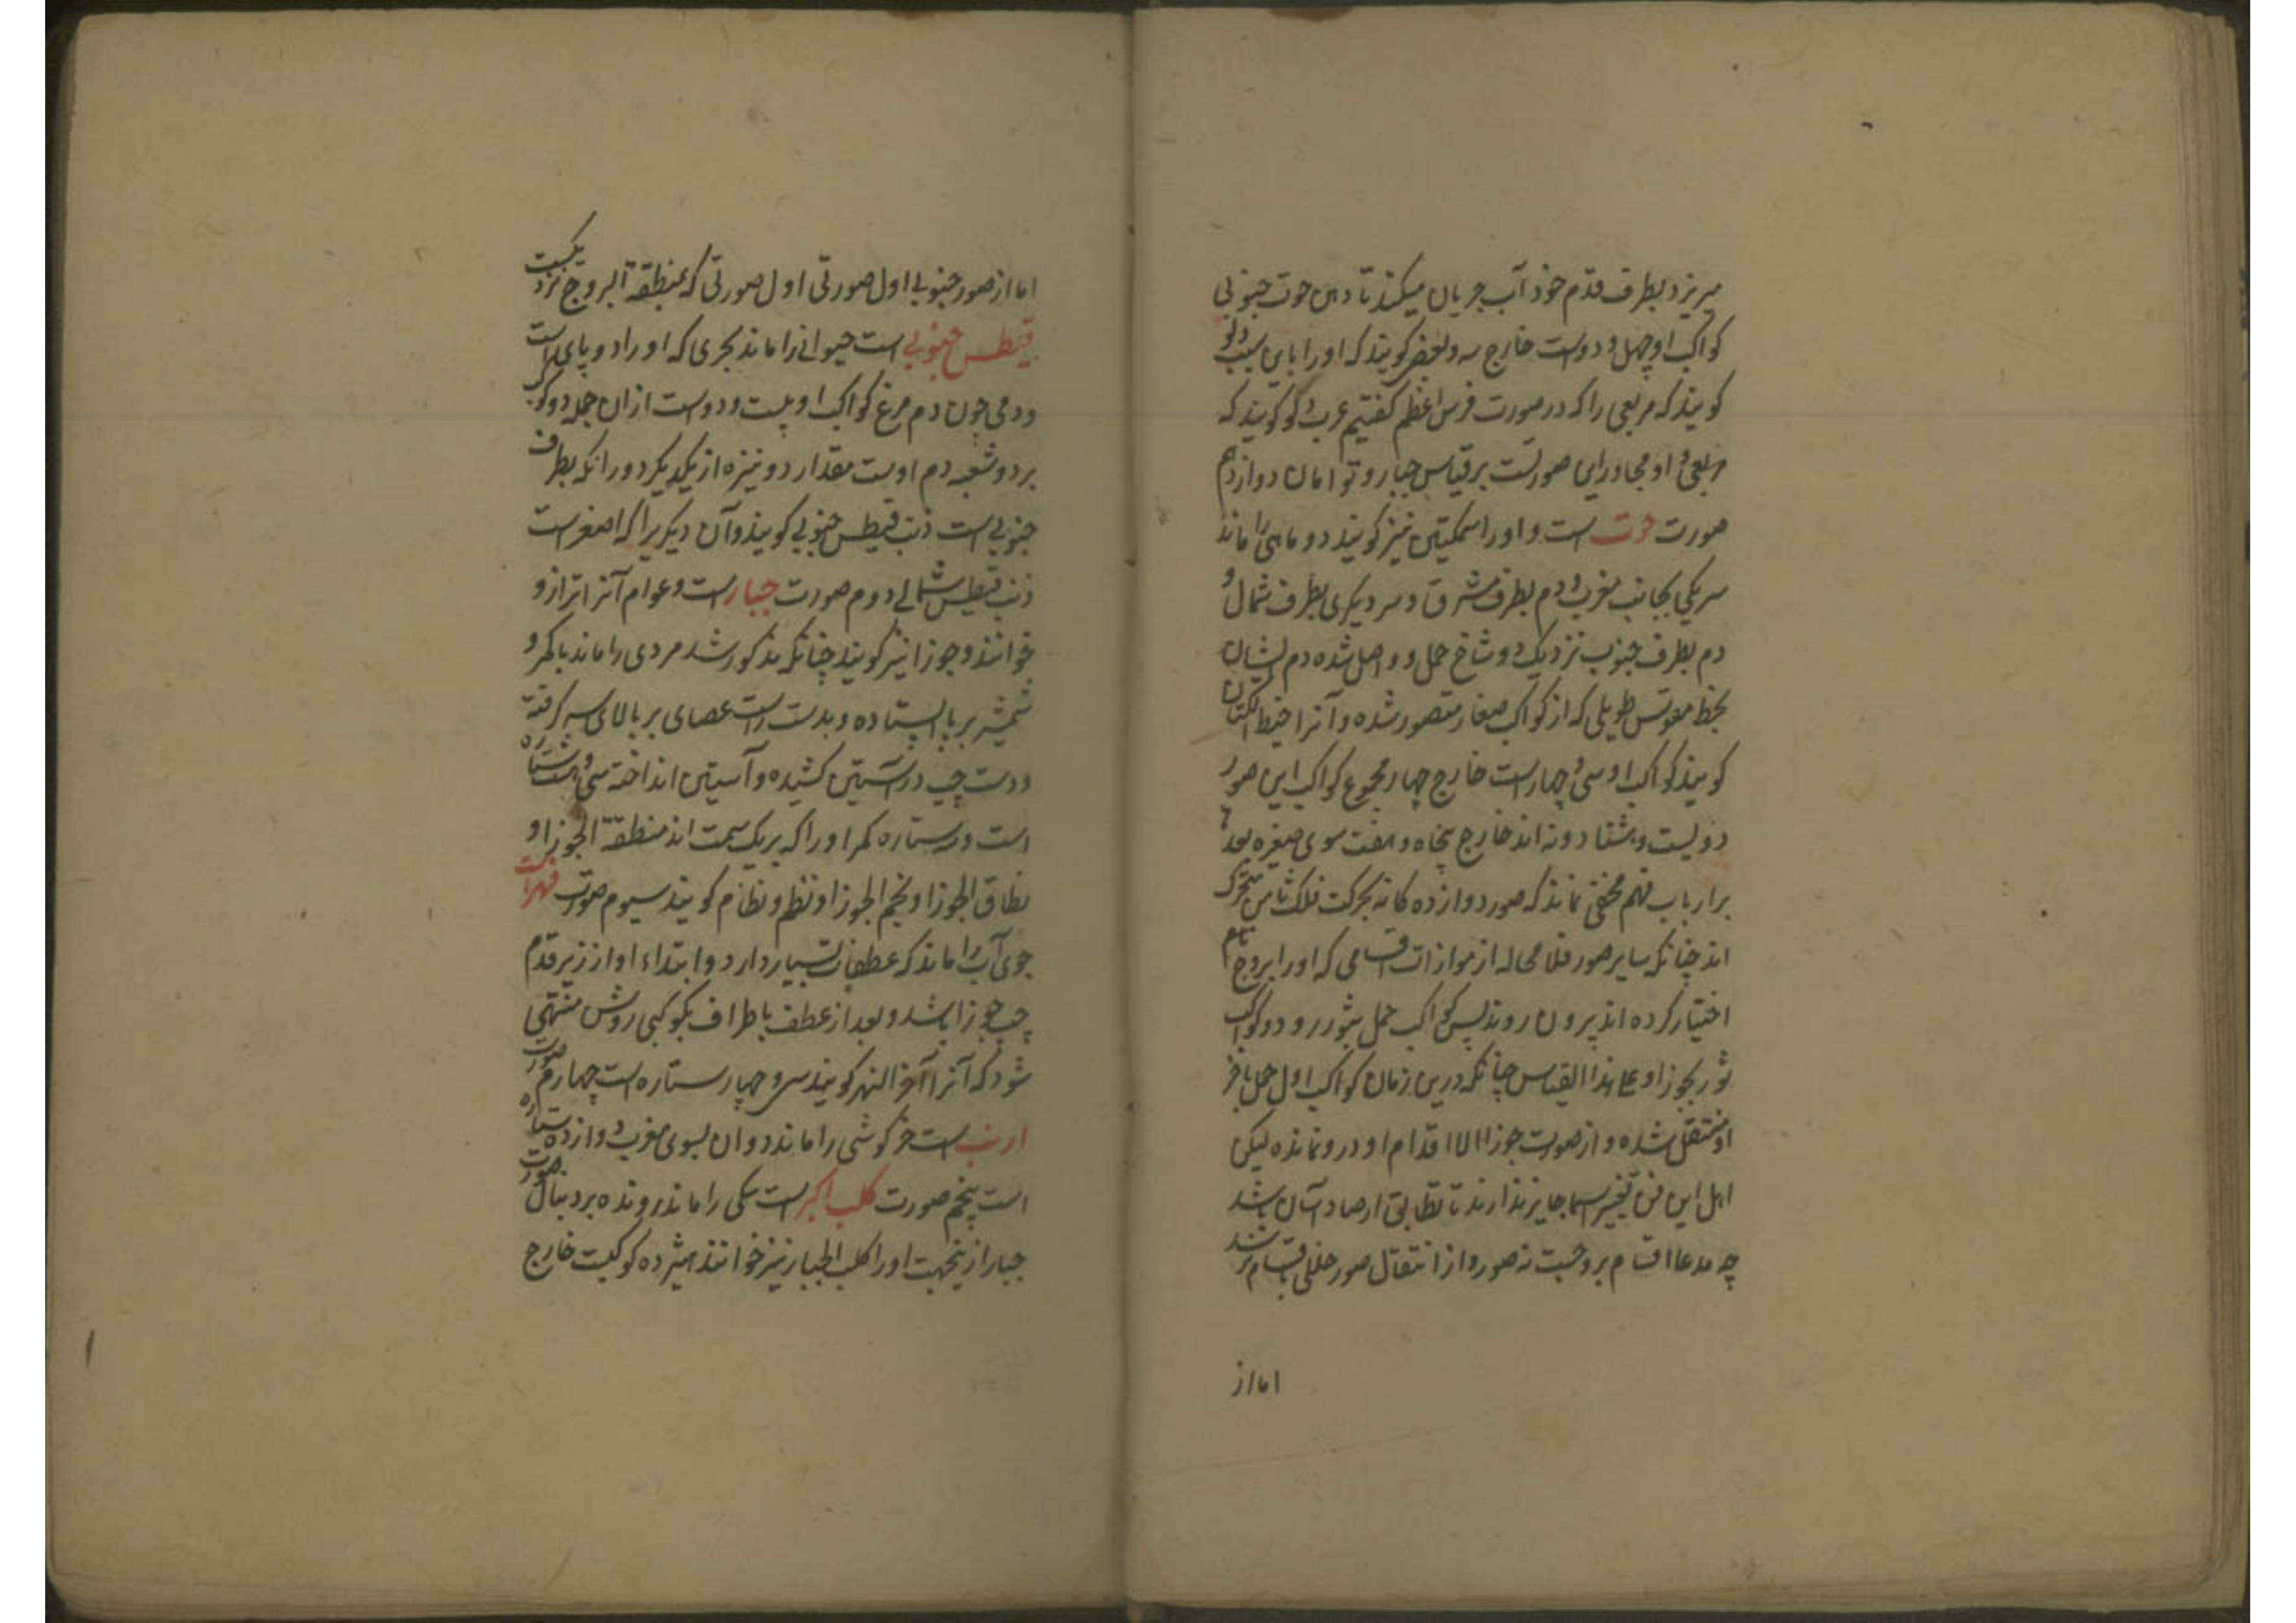 میریزد بطرف قدم خود آب جریان میکند تا دهن حوت جنوبی
کواکب او چهل و دوست خارج سه و بعضی کویند که اورا بابن سبب دلو
کویند که مربعی را که در صورت فرس اعظم کفتیم عرب دلو کویند که
مربعی و او مجاور این صورتست بر قیاس جبار و توامان دوازدهم
صورت حوت است و اورا سمکتین نیز کویند دو ماهی را ماند
سر یکی بجانب مغرب و دم بطرف مشرق و سر دیکری بطرف شمال و
دم بطرف جنوب نزدیک دو شاخ حمل و واصل شده دم ایشان
بخط مقوس طویلی که از کواکب صغار متصور شده و آنرا خیط الکتان
کویند کواکب او سی و چهارست خارج چهار مجموع کواکب این صور
دویست و هشتاد و نه اند خارج پنجاه و هفت سوی صغیره بعد
بر ارباب فهم مخفی نماند که صور دوازده کانه بحرکت فلک ثامن متحرک
اند چنانکه سایر صور فلا محاله از موازات اقسامی که اورا بروج نام
اختیار کرده اند بیرون روند پس کواکب حمل بثور رود و کواکب
ثور بجوزا و علی هذا القیاس چنانکه درین زمان کواکب اول حمل باخر
او منتقل شده و از صورت جوزا الا اقدام او درو نمانده لیکن
اهل این فن تغییر اسما جایز ندارند تا تطابق ارصاد آسان باشد
چه مدعا اقسام بروجست نه صور و از انتقال صور خللی باقسام نرسد
اما از
اما از صور جنوبی اول صورتی اول صورتی که بمنطقة البروج نزدیکست
قیطس جنوبی است حیوانی را ماند بحری که اورا دو پای است
و دمی چون دم مرغ کواکب او بیست و دوست ازان جمله دو کوکب
بر دو شعبه دم اوست مقدار دو نیزه از یکدیکر دور انکه بطرف
جنوبی است ذنب قیطس جنوبی کویند و آن دیکریرا که اصغر است
ذنب قیطس شمالی دوم صورت جبار است و عوام آنرا ترازو
خوانند و جوزا نیز کویند چنانکه مذکور شد مردی را ماند با کمر و
شمشیر بر پا ایستاده و بدست راست عصای بر بالای سر کرفته
و دست چپ در آستین کشیده و آستین انداخته سی و هشت ستاره
است و سه ستاره کمر اورا که بر یک سمت اند منطقة الجوزا و
نطاق الجوزا و نجم الجوزا و نظم و نظام کویند سیوم صورت نهر است
جوی آب را ماند که عطفات بسیار دارد و ابتداء او از زیر قدم
چپ جوزا باشد و بعد از عطف باطراف بکوکبی روشن منتهی
شود که آنرا آخر النهر کویند سی و چهار ستاره است چهارم صورت
ارنب است خرکوشی را ماند دوان بسوی مغرب دوازده ستاره
است پنجم صورت کلب اکبر است سکی را ماند رونده بر دنبال صورت
جبار ازینجهت اورا کلب الجبار نیز خوانند هیژده کوکبست خارج